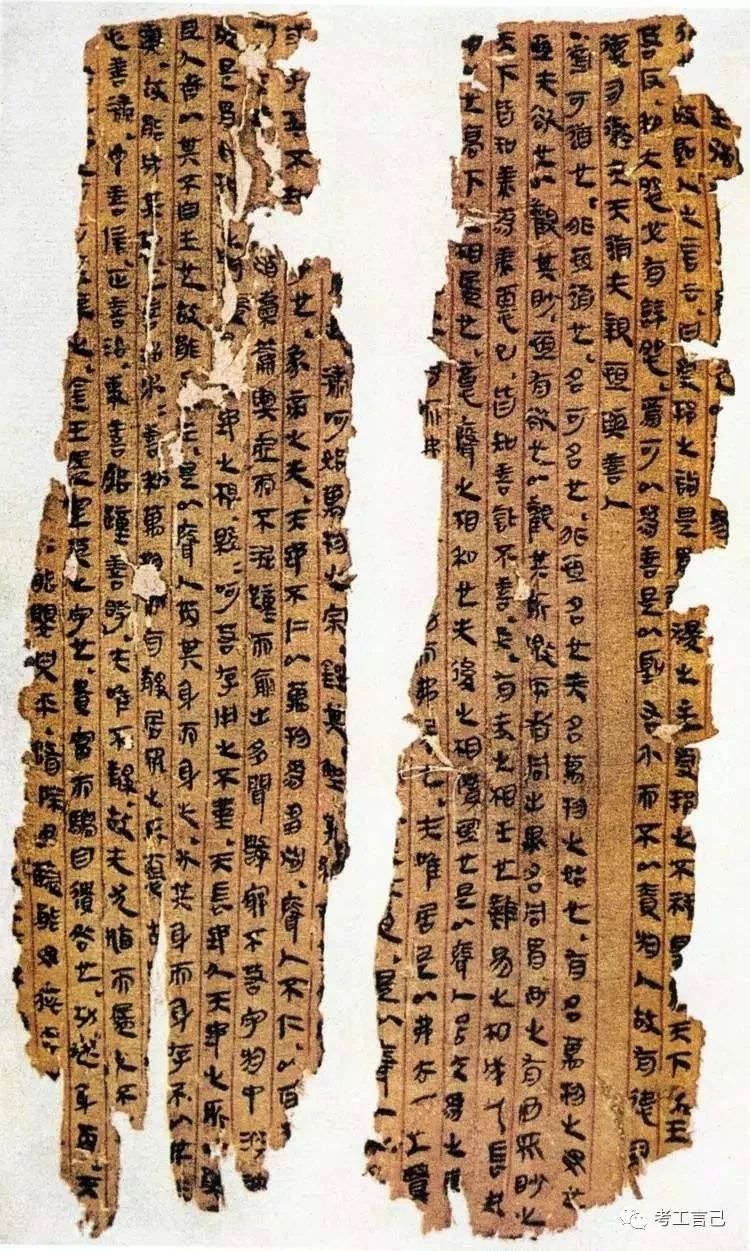 故聖人之言云曰受邦之詢是胃稷之主受邦之不祥是胃天下之王
若反和大怨必有餘怨焉可以為善是以聖右介而不以責於人故有德司
德司徹夫天道无親恒與善人
道可道也非恒道也名可名也非恒名也无名萬物之始也有名萬物之母也
恒无欲也以觀其眇恒有欲也以觀其所噭兩者同出異名同胃玄之有玄眾眇之
天下皆知美為美惡已皆知善訾不善矣有无之相生也難易之相成也長短
也高下之相盈也意聲之相和也先後之相隋恒也是以聲人居无為之事
而弗居也夫唯居是以弗去不上賢
是以聲人
潚呵始萬物之宗銼其
子也象帝之先天地不仁以萬物為芻狗聲人不仁以百
猶橐籥輿虛而不淈蹱而俞出多聞數窮不若守於中浴神
是胃地之根緜呵若存用之不堇天長地久天地之所以
且久者以其不自生也故能長生是以聲人芮其身而身先外其身而身存不以其无
輿故能成其私上善治水水善利萬物而有靜居眾之所惡故
心善潚予善信正善治事善能蹱善時夫唯不靜故无尤揰而盈之不
之金玉盈室莫之守也貴富而驕自遺咎也功述身芮天
能嬰兒乎脩除玄藍能毋疵
考工言己